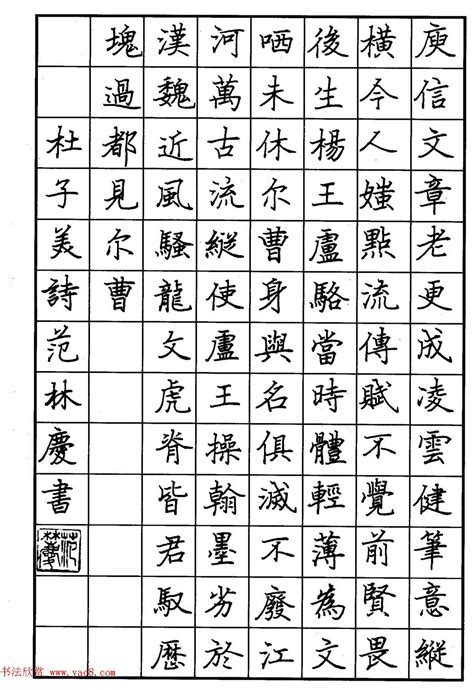 庾信文章老更成凌雲健筆意縱
橫今人媸點流傳賦不覺前賢畏
後生楊王盧駱當時體輕薄為文
哂未休尔曹身與名俱滅不廢江
河萬古流縱使盧王操翰墨劣於
漢魏近風騷龍文虎脊皆君馭歷
塊過都見尔曹
杜子美詩范林慶書
书法欣赏 www.yac8.com